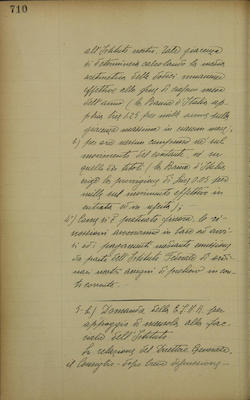 710
all'Istituto nostro. Tale giacenza
si determinerà calcolando la media
aritmetica delle dodici rimanenze
effettive alla fine di ciascun mese
dell'anno (la Banca d'Italia ap-
plica lire 0.25 per mille annue sulla
giacenza massima in ciascun mese);
per ora nessun compenso nè sul
movimento del contante, nè su
quello dei titoli (la Banca d'Italia
esige la provvigione di lire 0.05 per
mille sul movimento effettivo in
entrata ed in uscita);
4) Come si è praticato finora, le ri-
messe avverranno in base ad avvi-
si di pagamenti mediante emissione
da parte dell'Istituto Federale di ordi-
nari nostri assegni di prelievo in con-
to corrente.
5-b) Domanda della E.I.A.R. per
appoggio di mensola alla fac-
ciata dell'Istituto
La relazione del Direttore Generale,
il Consiglio - dopo breve discussione -